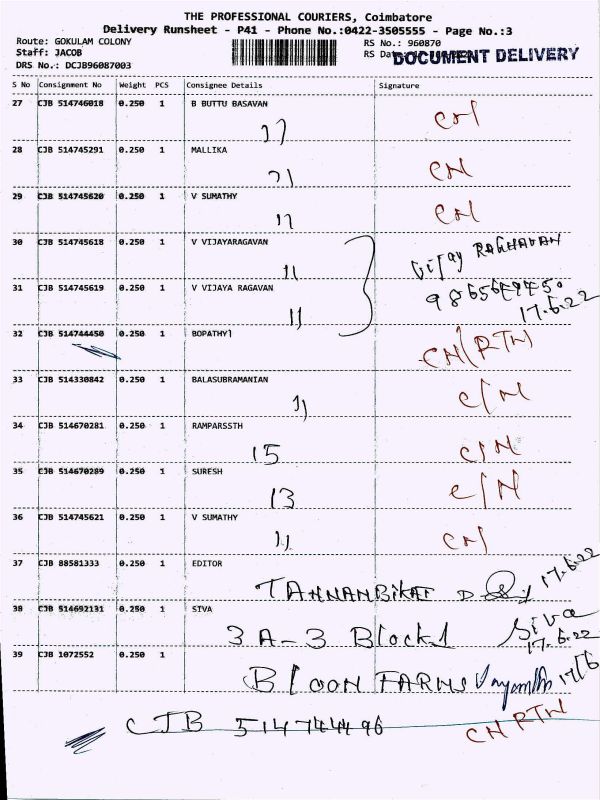 THE PROFESSIONAL COURIERS, Coimbatore
Delivery Runsheet - P41 - Phone No.:0422-3505555 - Page No.:3
Route: GOKULAM COLONY RS No.: 960870
Staff: JACOB RS Date: DOCUMENT DELIVERY
DRS No.: DCJB96087003
S No Consignment No Weight PCS Consignee Details Signature
27 CJB 514746018 0.250 1 B BUTTU BASAVAN
17 CN
28 CJB 514745291 0.250 1 MALLIKA
21 CN
29 CJB 514745620 0.250 1 V SUMATHY
17 CN
30 CJB 514745618 0.250 1 V VIJAYARAGAVAN
11 Vijay RAGHAVAN
31 CJB 514745619 0.250 1 V VIJAYA RAGAVAN
11 17.6.22
32 CJB 514744450 0.250 1 BOPATHY
CN (RTN)
33 CJB 514330842 0.250 1 BALASUBRAMANIAN
11 C/N
34 CJB 514670281 0.250 1 RAMPARSSTH
15 C/N
35 CJB 514670289 0.250 1 SURESH
13 C/N
36 CJB 514745621 0.250 1 V SUMATHY
11 CN
37 CJB 88581333 0.250 1 EDITOR
17.6.22
38 CJB 514692131 0.250 1 SIVA
3 A-3 Block1 Siva
17.6.22
39 CJB 1072552 0.250 1
BLOON FARMS 17/6
CJB 514744496 CN RTN